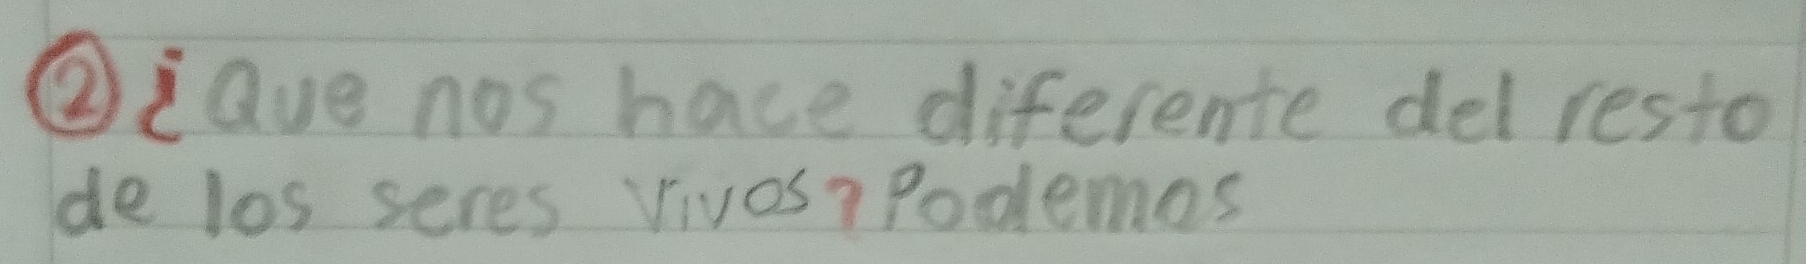 ② ¿Que nos hace diferente del resto
de los seres vivos? Podemos